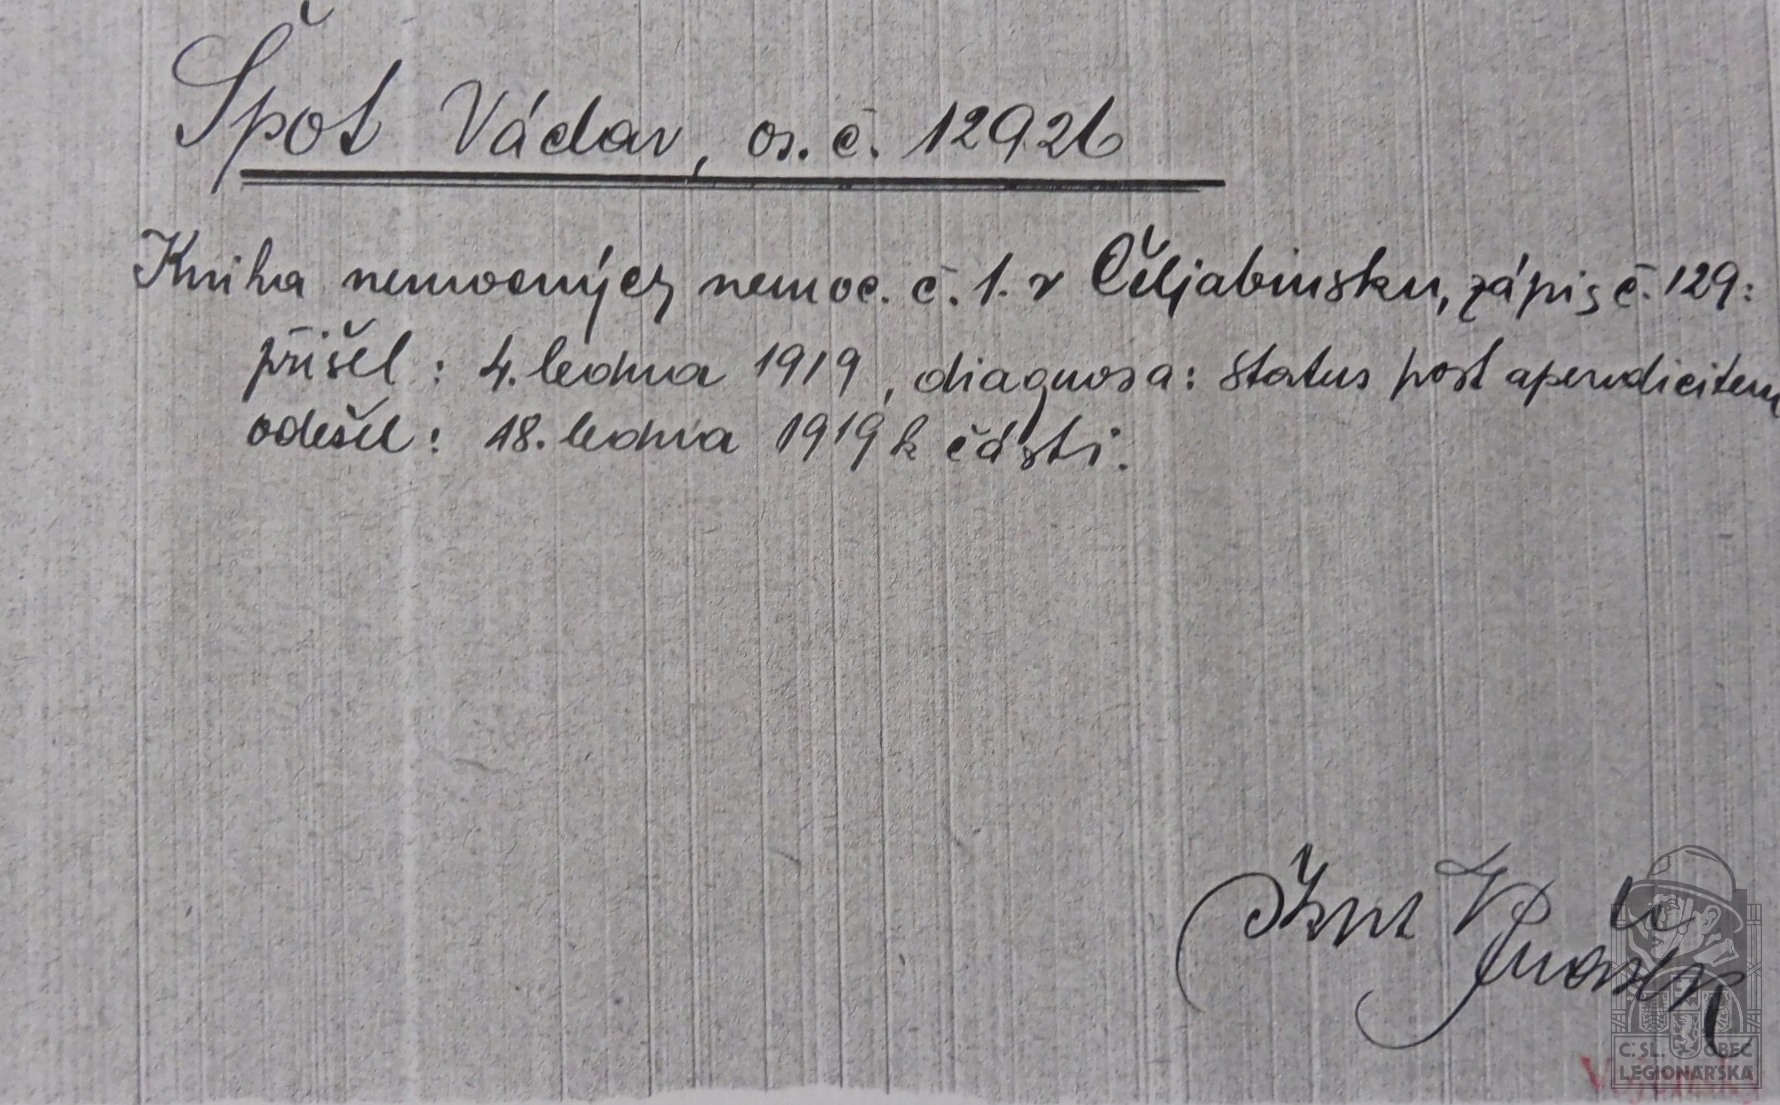 Špot Václav, os. č. 12926
Kniha nemocných nemoc. č. 1. v Čeljabinsku, zápis č. 129:
přišel: 4. ledna 1919, diagnosa: status post apendicitem
odešel: 18. ledna 1919 k části.
Č.SL. OBEC
LEGIONÁŘSKÁ